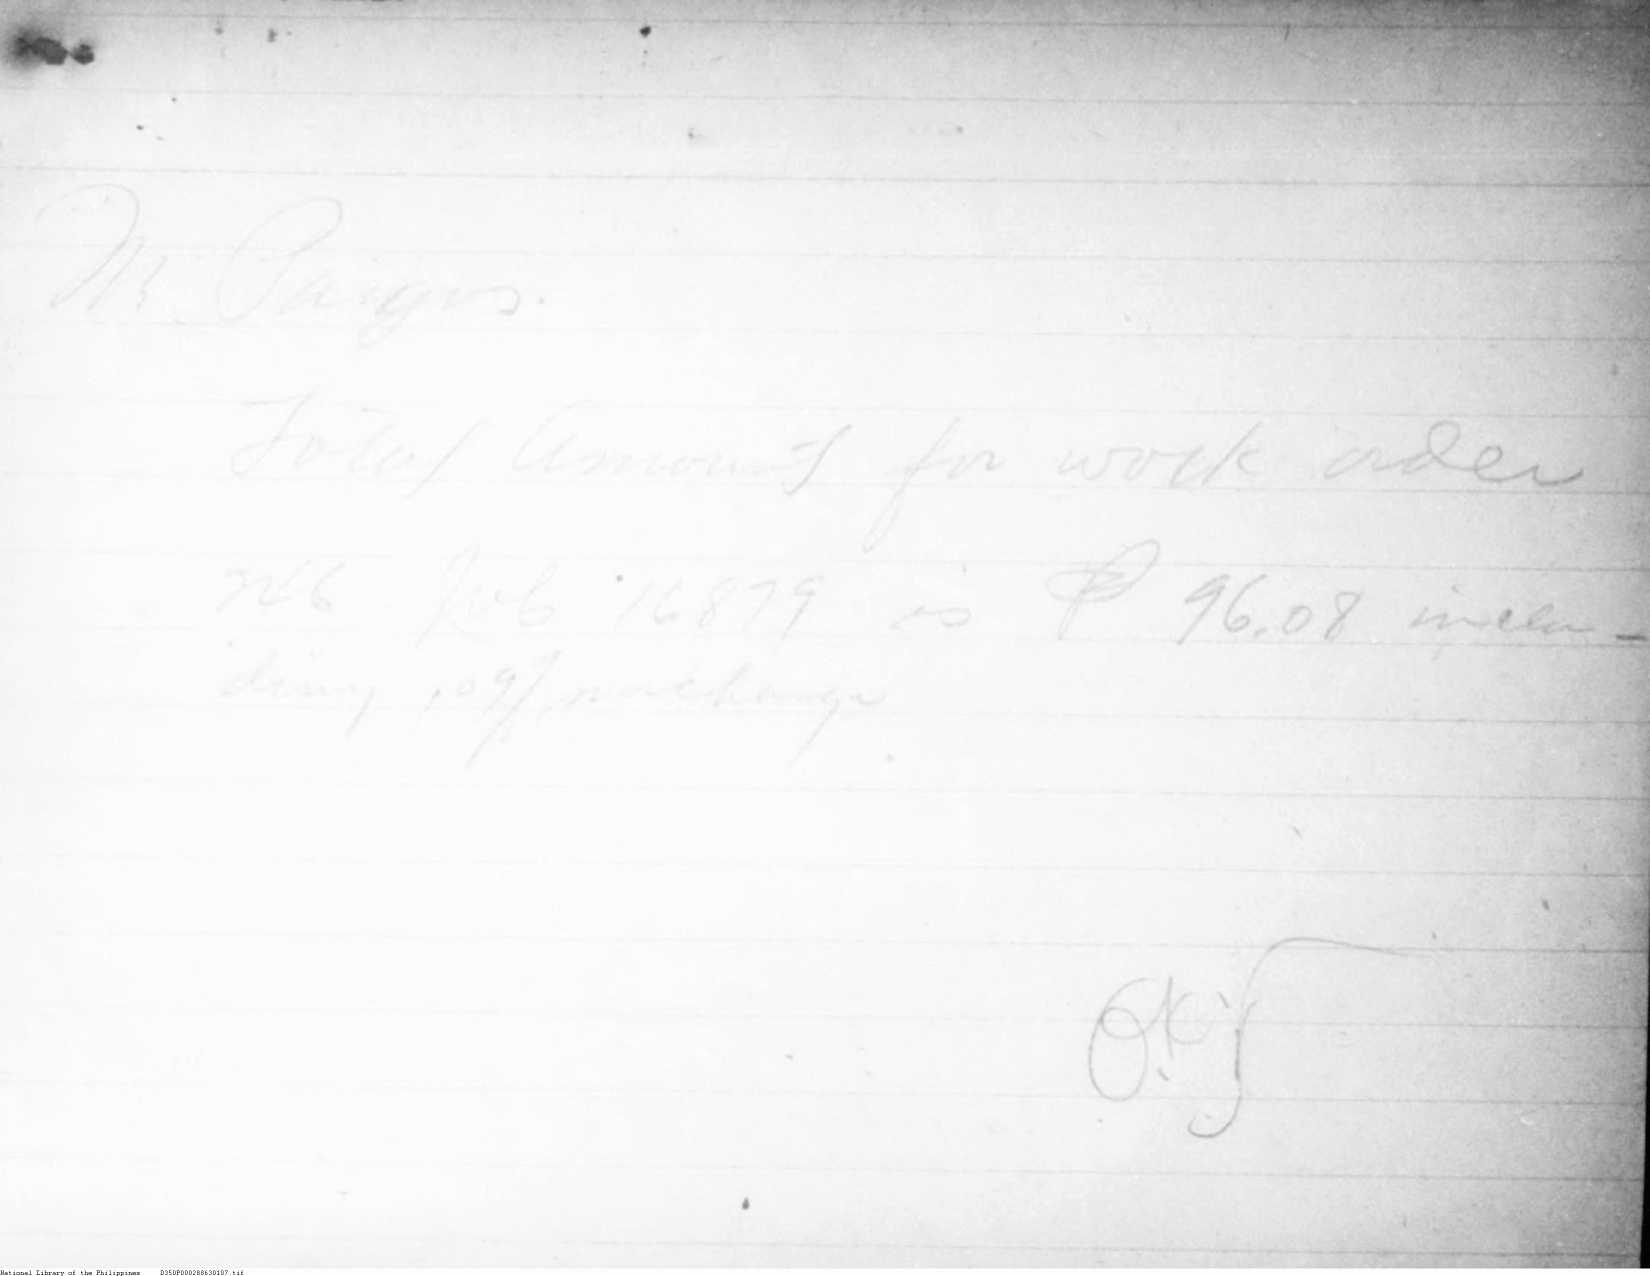 Mr. Pargas.
Total Amount for work order
No Job 16879 is ₱ 96.08 inclu-
ding 10% surcharge
National Library of the Philippines D350P000288630107.tif